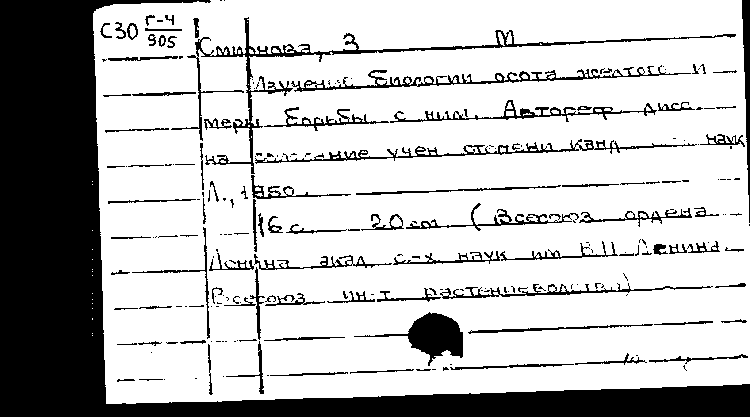 С30 Г-4
905
Смирнова, З М
Изучение биологии осота желтого и
меры борьбы с ним. Автореф дисс.
на соискание учен степени канд наук
Л., 1950.
16 с. 20 см (Всесоюз ордена
Ленина акад с.-х наук им В.И Ленина.
Всесоюз ин-т растениеводства)